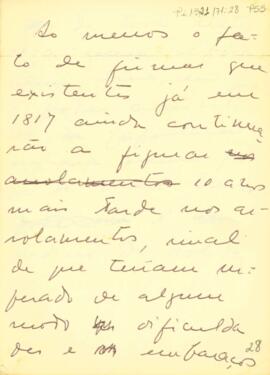 Pi 1921/71:28 PSS
Ao menos o fa-
to de firmas que
existentes já em
1817 ainda continua
rão a figurar nos
arrolamentos 10 anos
mais tarde nos ar-
rolamentos, sinal
de que teriam su-
perado de algum
modo dificulda
des e embaraços
28